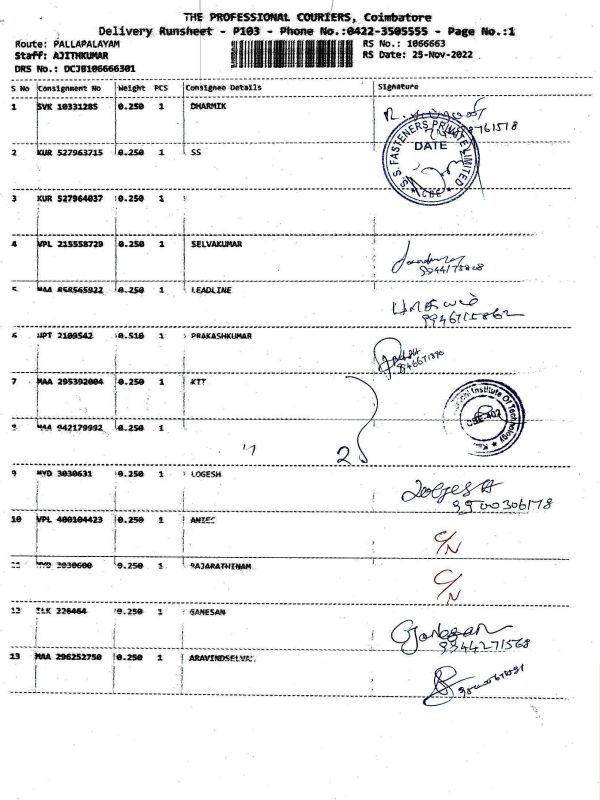 THE PROFESSIONAL COURIERS, Coimbatore
Delivery Runsheet - P103 - Phone No.:0422-3505555 - Page No.:1
Route: PALLAPALAYAM RS No.: 1066663
Staff: AJITHKUMAR RS Date: 25-Nov-2022
DRS No.: DCJB106666301
S No Consignment No Weight PCS Consignee Details Signature
1 SVK 1033128S 0.250 1 DHARMIK
2 KUR 527963715 0.250 1 SS
S.S. FASTENERS PRIVATE LIMITED
DATE
CBE
3 KUR 527964037 0.250 1
4 VPL 215558729 0.250 1 SELVAKUMAR
5 MAA 858565922 0.250 1 LEADLINE
6 2109542 0.510 1 PRAKASHKUMAR
7 MAA 295392004 0.250 1 KTT
Institute Of Technology
MAA 942179992 0.250 1
2
9 MYD 3030631 0.250 1 LOGESH
Logesh
9900306178
10 VPL 400104423 0.250 1
C/N
MYD 3030600 0.250 1 RAJARATHINAM
C/N
12 226464 0.250 1 GANESAN
Ganesan
9344271568
13 MAA 296252750 0.250 1